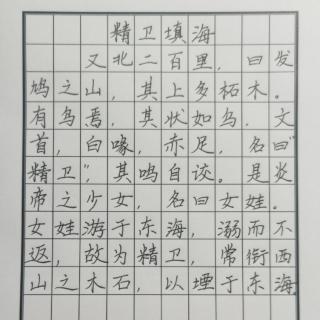 精卫填海
又北二百里，曰发
鸠之山，其上多柘木。
有鸟焉，其状如乌，文
首，白喙，赤足，名曰“
精卫”，其鸣自詨。是炎
帝之少女，名曰女娃。
女娃游于东海，溺而不
返，故为精卫，常衔西
山之木石，以堙于东海。